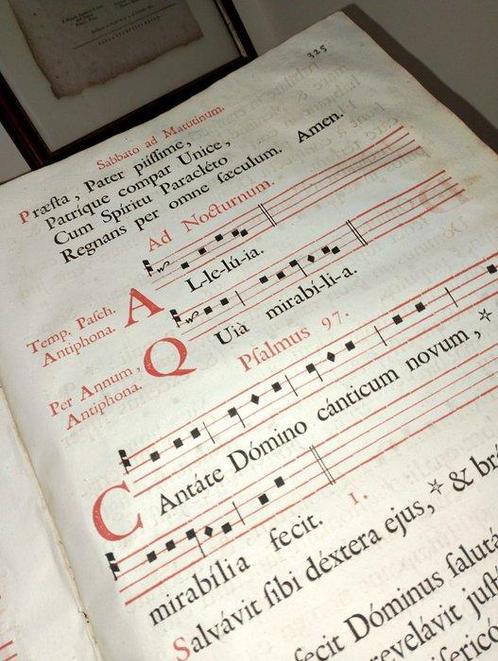 325
Sabbato ad Matutinum.
Præſta, Pater piiſſime,
Patrique compar Unice,
Cum Spíritu Paracléto
Regnans per omne ſæculum. Amen.
Ad Nocturnum.
Temp. Paſch.
Antiphona.
AL-le-lú-ia.
Per Annum,
Antiphona.
QUià mirabí-li-a.
Pſalmus 97.
CAntáte Dómino cánticum novum, *
mirabília fecit. 1.
Salvávit ſibi déxtera ejus, * & brá
fecit Dóminus ſalutá
revelávit juſt